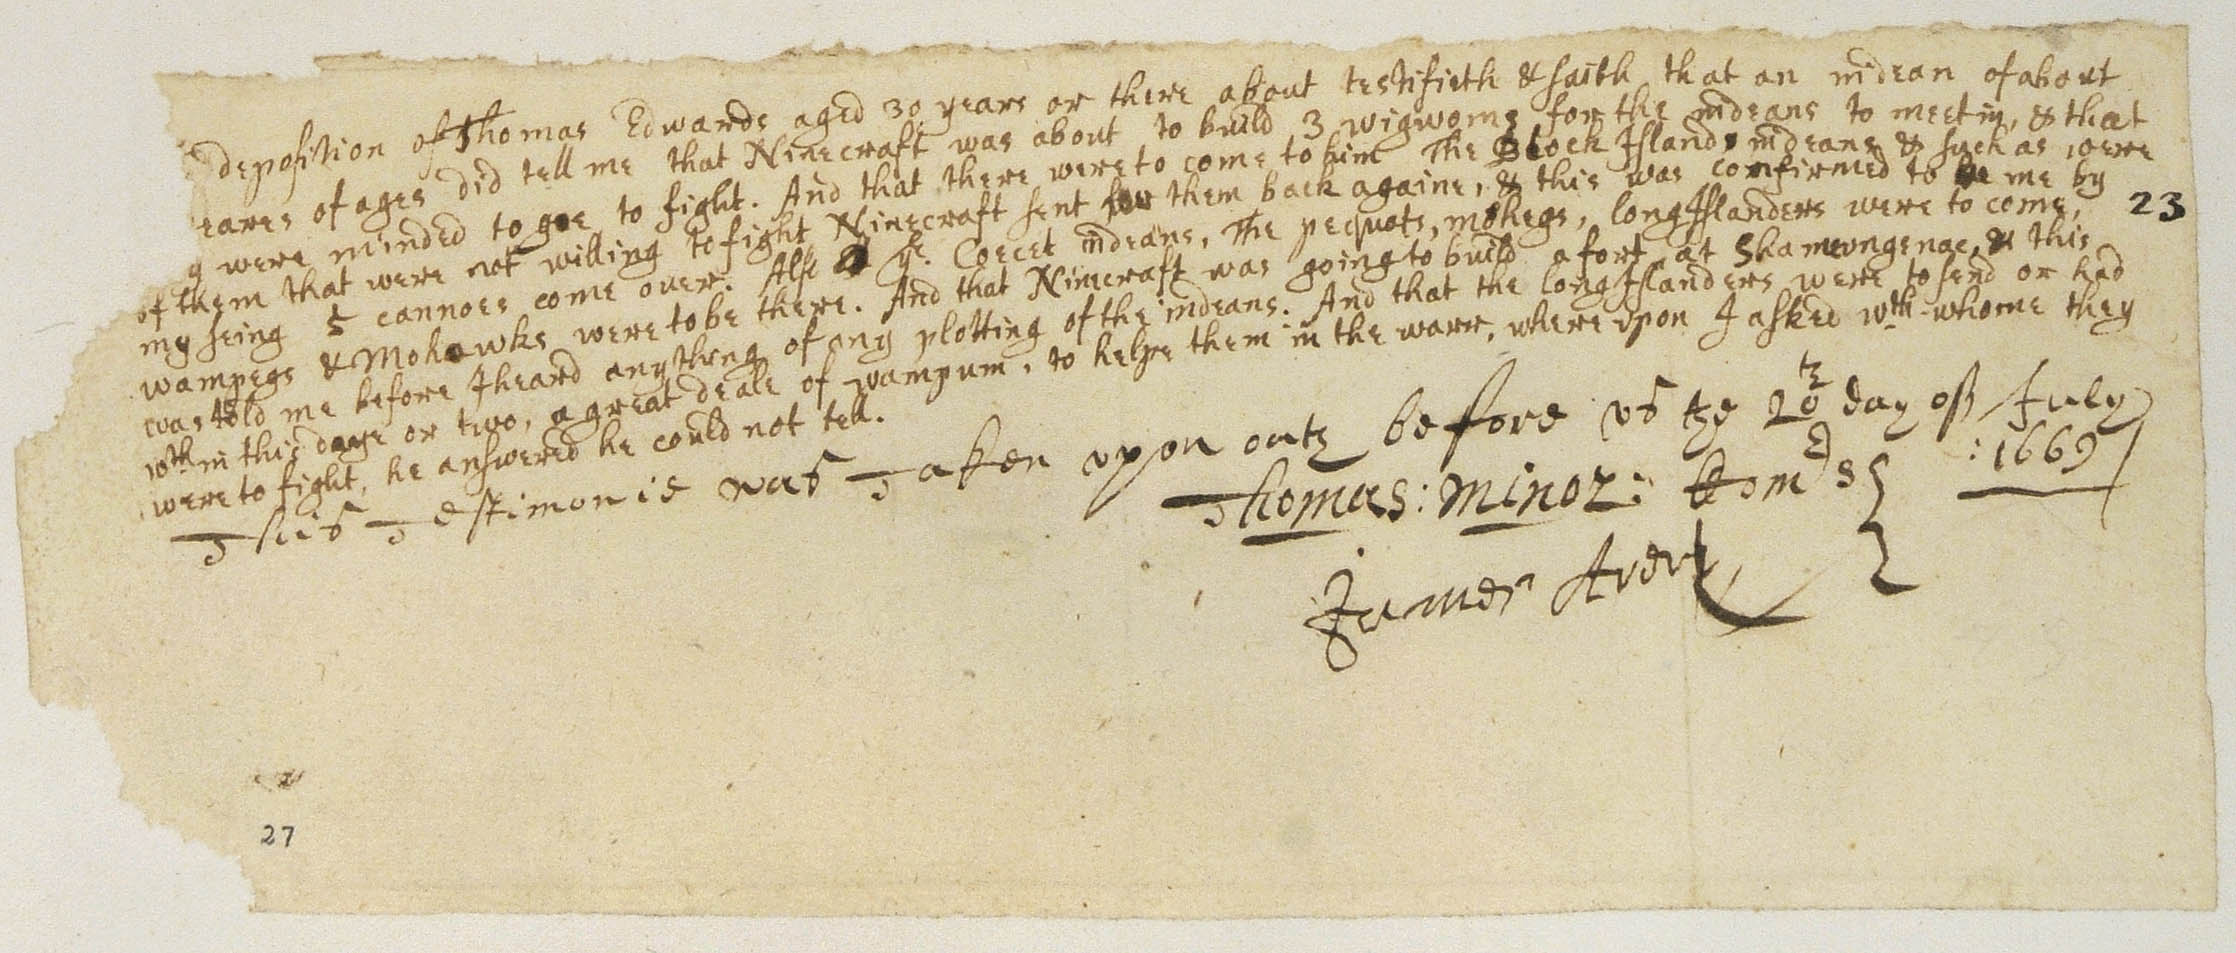 deposition of Thomas Edwards aged 30 years or there about testifieth & saith that an indean of about
eares of ages did tell me that Ninecraft was about to build 3 wigwoms for the indeans to meet in, & that
y were minded to goe to fight. And that there were to come to him The Block Islands indeans & such as were
of them that were not willing to fight Ninecraft sent for them back againe, & this was confirmed to me by
my seing 5 cannoes come over. Also ye. Coecet indeans, The pequots, mohegs, long Islanders were to come,
23
wampegs & Mohowks were to be there. And that Ninicraft was going to build a fort at Shameungenac, & this
was told me before I heard any thing of any plotting of the indeans. And that the long Islanders were to send or had
wth in this daye or two, a great deale of wampum, to helpe them in the warr, where upon I asked wth whome they
were to fight, he answered he could not tell.
This Testimonie was Taken upon oath before us the 20th day off July
:1669
Thomas: Minor: Comds
James Avery
27